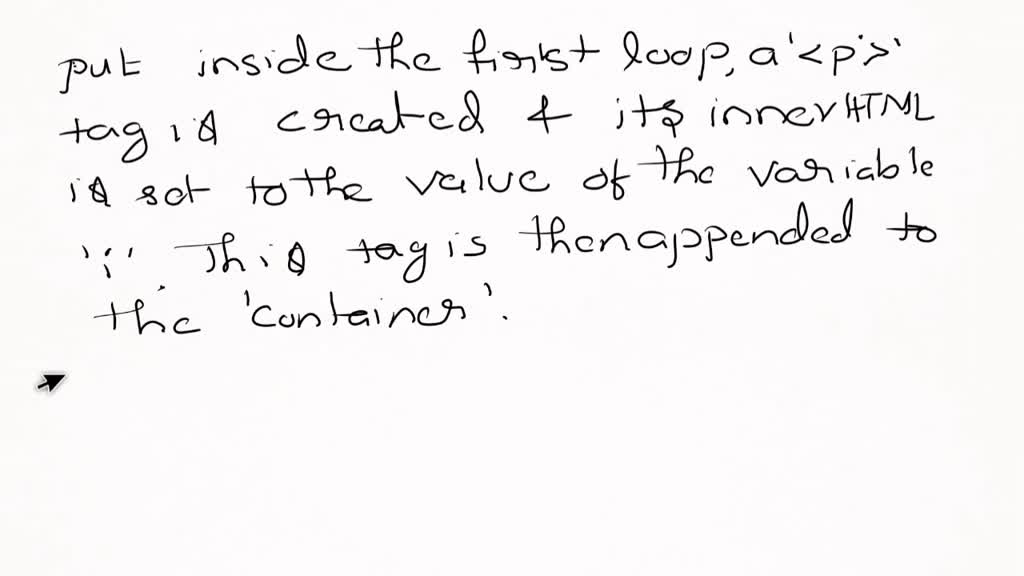 put inside the first loop, a '<p>'
tag is created & its innerHTML
is set to the value of the variable
'i'. This tag is then appended to
the 'container'.